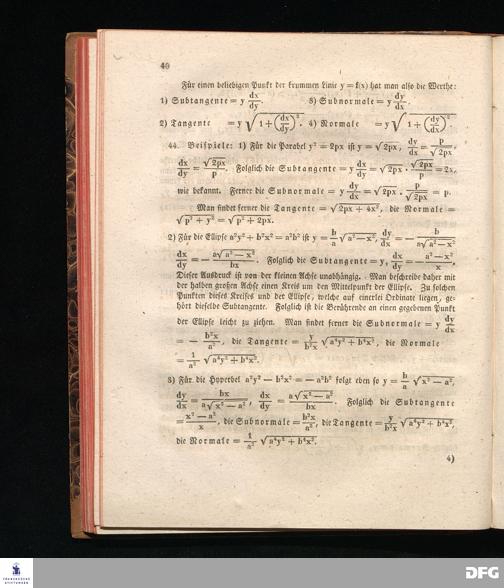 40
Für einen beliebigen Punkt der krummen Linie y = f(x) hat man also die Werthe:
1) Subtangente = y dx/dy. 3) Subnormale = y dy/dx.
2) Tangente = y √(1 + (dx/dy)²). 4) Normale = y √(1 + (dy/dx)²).
44. Beispiele: 1) Für die Parabel y² = 2px ist y = √2px, dy/dx = p/√2px,
dx/dy = √2px/p. Folglich die Subtangente = y dx/dy = √2px . √2px/p = 2x,
wie bekannt. Ferner die Subnormale = y dy/dx = √2px . p/√2px = p.
Man findet ferner die Tangente = √(2px + 4x²), die Normale =
√(p² + y²) = √(p² + 2px).
2) Für die Ellipse a²y² + b²x² = a²b² ist y = b/a √(a² — x²), dy/dx = — b/a√(a² — x²)
dx/dy = — a√(a² — x²)/bx. Folglich die Subtangente = y, dx/dy = — a² — x²/x,
Dieser Ausdruck ist von der kleinen Achse unabhängig. Man beschreibe daher mit
der halben großen Achse einen Kreis um den Mittelpunkt der Ellipse. Zu solchen
Punkten dieses Kreises und der Ellipse, welche auf einerlei Ordinate liegen, ge-
hört dieselbe Subtangente. Folglich ist die Berührende an einen gegebenen Punkt
der Ellipse leicht zu ziehen. Man findet ferner die Subnormale = y dy/dx
= — b²x/a², die Tangente = y/b²x √(a⁴y² + b⁴x²), die Normale
= 1/a² √(a⁴y² + b⁴x²).
3) Für die Hyperbel a²y² — b²x² = — a²b² folgt eben so y = b/a √(x² — a²),
dy/dx = bx/a√(x² — a²), dx/dy = a√(x² — a²)/bx. Folglich die Subtangente
= x² — a²/x, die Subnormale = b²x/a², die Tangente = y/b²x √(a⁴y² + b⁴x²),
die Normale = 1/a² √(a⁴y² + b⁴x²).
4)
FRANCKESCHE
STIFTUNGEN
DFG